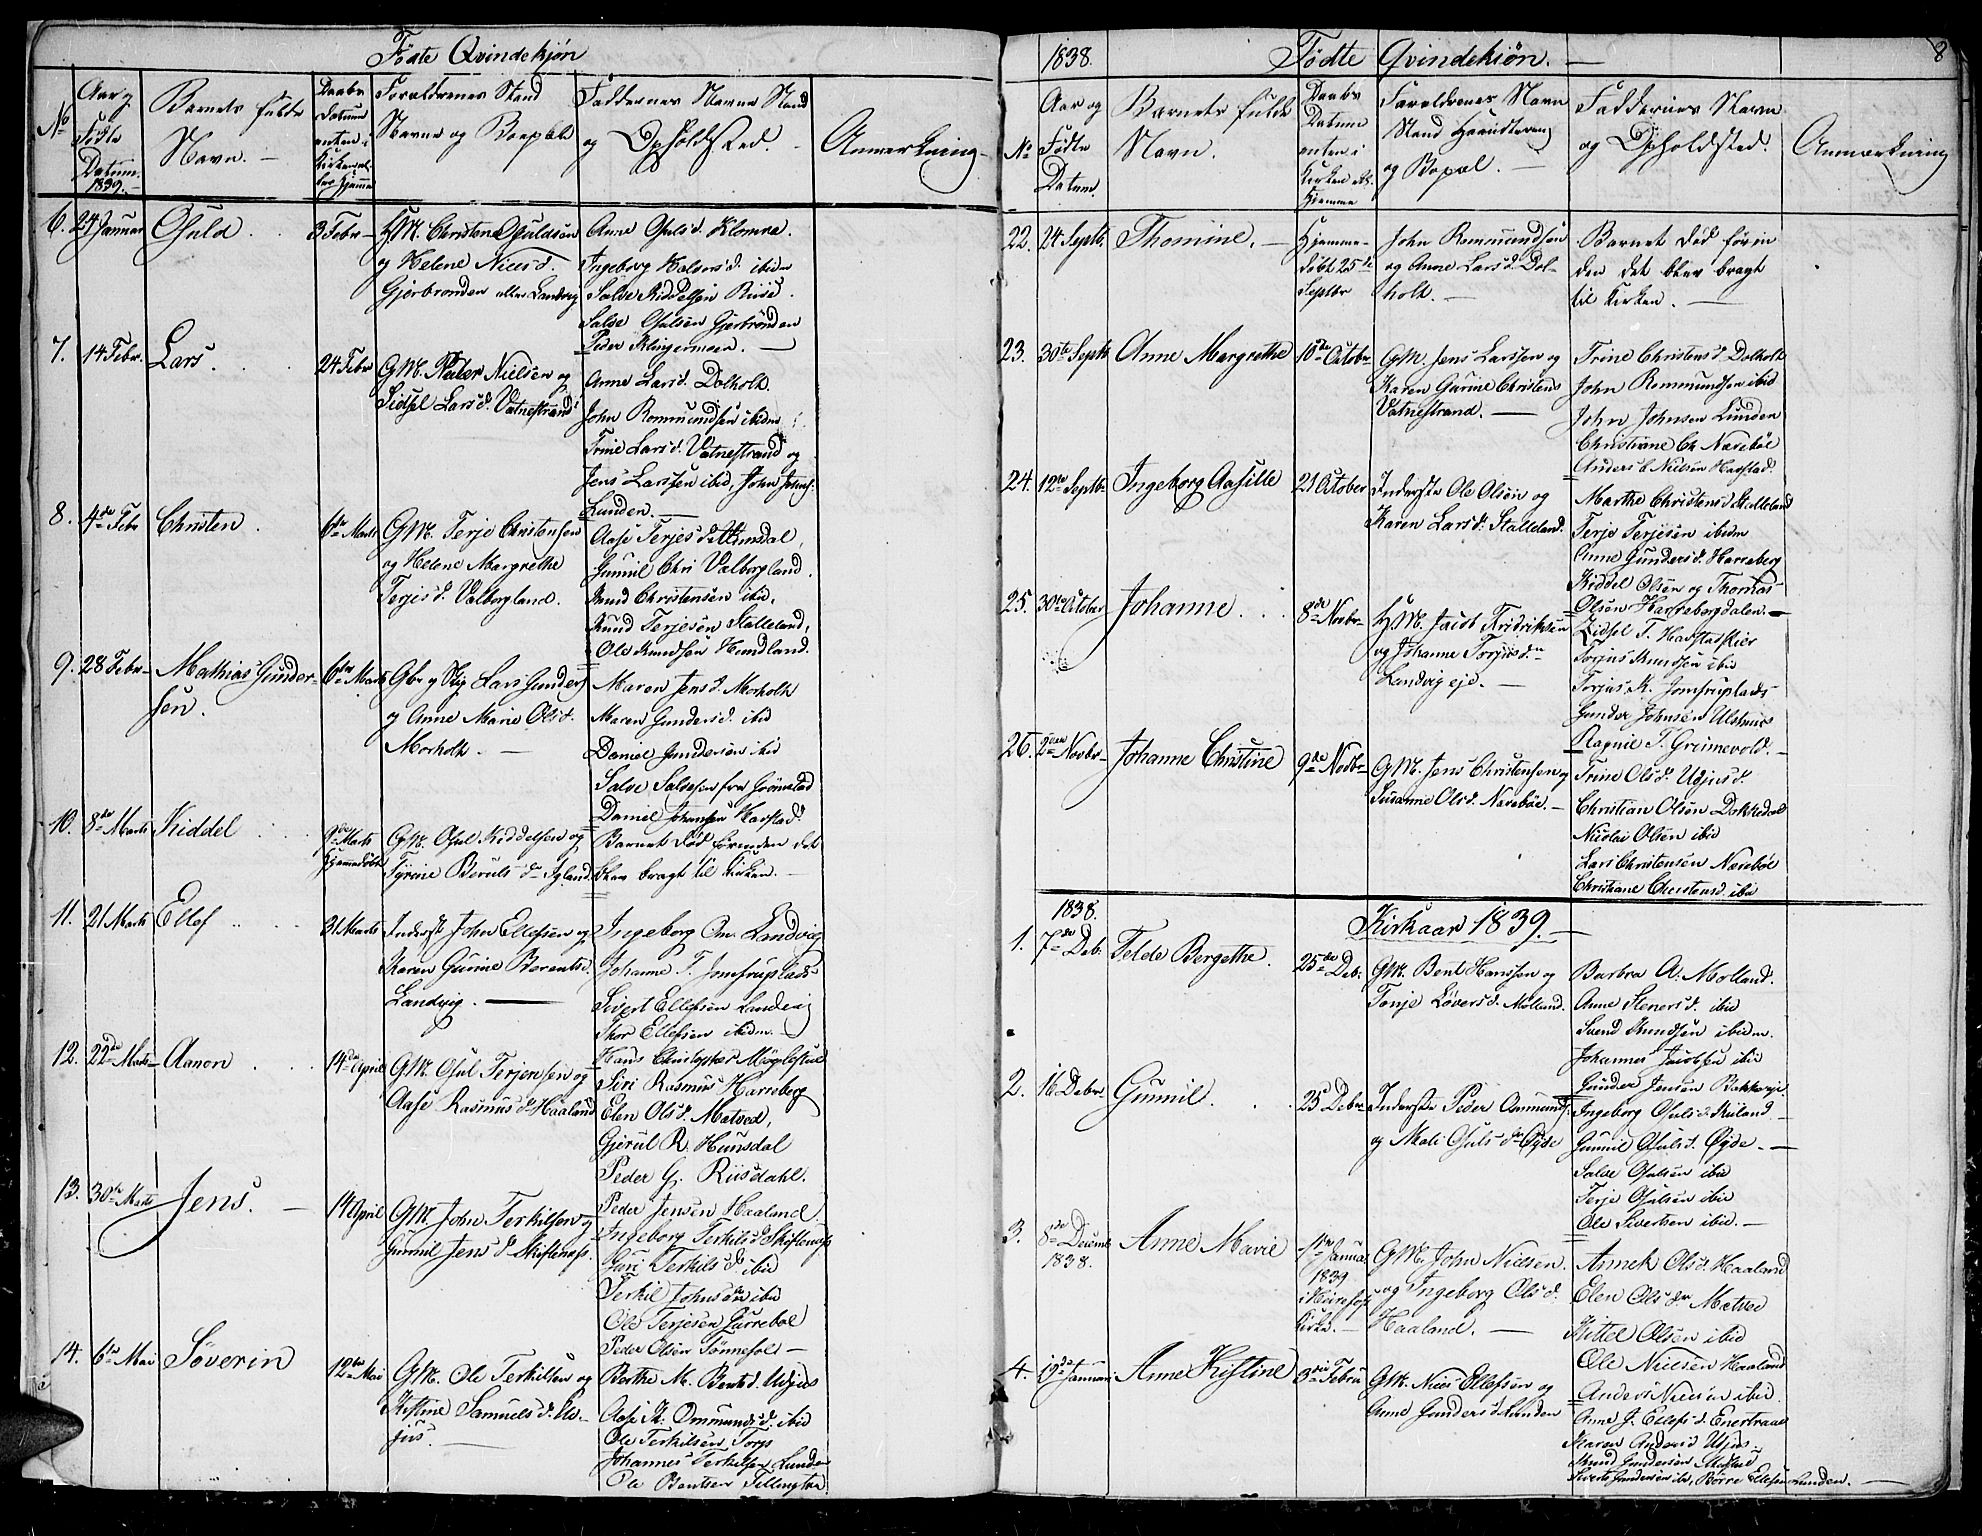 Fødte Qvindekjøn
No
Aar og
Fødte
Datum
1839.
Barnets fulde
Navn.
Daabs
Datum
enten i
Kirken el-
ler hjemme
Foreldrenes Stand
Navne og Boepæl
Faddernes Navne Stand
og Opholdsted.
Anmerkning
6. 24 Januar Osuld 3 Febr
GM. Christen Osuldsen
og Helene Nielsd.
Gjerbronden under Landvig
Anne Osulsd. Klomra.
Ingeborg Halvorsd. ibidm
Salve Kiddelsen Riise.
Salve Osulsen Gjerbrønden
Peder Klingermoen.
7. 14 Febr. Lars. 24 Febr
GM. Peder Nielsen og
Sidsel Larsd. Vatnestrand
Anne Larsd. Dolholt.
John Rommundsen ibidm
Trine Larsd. Vatnestrand og
Jens Larssen ibid, John Johns.
Lunden.
8. 4de Febr Christen. 6te Marts
GM. Terje Christensen
og Helene Margrethe
Terjesd. Valborgland.
Aase Terjesd.
Gunnil Chri Valborgland.
Knud Christensen ibid.
Knud Terjesen Stalleland,
Ole Knudsen Hundland.
9. 28 Febr Mathias Gunder-
sen.
6te Marts
Gbr og Skp Lars Gunders
og Anne Marie Olsd.
Morholt.
Maren Jensd. Morholt
Maren Gundersd. ibid
Daniel Gundersen ibid
Salve Salvesen fra Grimstad
Daniel Johansen Harstad.
10. 8de Marts Kiddel
9de Marts
hjemmedøbt
GM. Osul Kiddelsen og
Tyrine Beruls d. Igland.
Barnet død förenden det
blev bragt til Kirken.
11. 21 Marts Ellef 31 Marts
Inderst John Ellefsen og
Karen Gurine Berentsd.
Landvig.
Ingeborg Om. Landvig
Johanne T. Jomfruplads
Sivert Ellefsen Landvig
Thor Ellefsen ibidm.
12. 22de Marts Aanon 14de April
GM. Osul Terjesen og
Aase Rasmus d. Haaland
Hans Christopher Møglestue
Siri Rasmus Harreberg
Elen Olsd. Matved,
Gjerul R. Hunsdal
Peder G. Riisdahl.
13. 30te Marts Jens. 14 April
GM. John Terkilsen og
Gunnil Jens d. Skiftenæs.
Peder Jensen Haaland
Ingeborg Terkilsd. Skiftenæs
Guri Terkilsd. ibid
Terkil Johnsøn ibid
Ole Terjesen Jurrebal
Peder Olsen Tønnesol
14. 6te Mai Söverin 12te Mai
GM. Ole Terkilsen og
Kistine Samuels d. Ud-
jus.
Berthe M. Bentsd. Udjus
Aase K. Ommundsd. ibid
Ole Terkilsen Torps
Johannes Terkelsen Lunden
Ole Bentsen Tellingtra
8
1838. Fødte Qvindekiön.
No
Aar og
Fødte
Datum
Barnets fulde
Navn.
Daabs
Datum
enten i
Kirken el.
hjemme
Foreldrenes Navn
Stand Haandtering
og Bopæl.
Faddernes Navn
og Opholdsted.
Anmærkning
22. 24 Septb. Thomine.
Hjemme-
døbt 25de
Septbr
John Rommundsen
og Anne Larsd. Dol-
holt.
Barnet død förin
den det blev bragt
til Kirken.
23. 30te Septb Anne Margrethe 10de Octobr
GM. Jens Larssen og
Karen Gurine Christens
Vatnestrand.
Trine Christensd. Dolholt
John Rommundsen ibid
John Johnsen Lunden
Christiane Ch. Nærebøe
Anders Nielsen Harstad.
24. 12te Septbr Ingeborg Aasille 21 October
Inderste Ole Olsen og
Karen Larsd. Stalleland.
Marthe Christensd. Stalleland
Terje Terjesen ibidm
Anne Gundersd. Harreberg
Kiddel Olsen og Thomas
Olsen Harrebergdalen.
25. 30te October Johanne. 8de Novbr
HM. Jacob Fridriksen
og Johanne Torjusd.
Landvig eje.
Zidsel T.
Torjus Knudsen ibid
Torjus K. Jomfruplads
Gunder Johnsen
Ragnil T. Grimevold.
26. 2den Novbr Johanne Christine 9de Novbr
GM. Jens Christensen og
Susanne Olsd. Nærebøe.
Trine Olsd. Udjusd.
Christian Olsen Dokkedal
Nicolai Olsen ibid
Lars Christensen Nærebøe
Christiane Christensd. ibid
1838.
Kirkaar 1839.
1. 7de Deb. Telde Bergethe. 25de Deb.
GM. Bent Hanssen og
Tonje Løversd. Molland.
Barbra A. Molland.
Anne Stenersd. ibid
Svend Knudsen ibidm.
Johannes Jacobsen ibid
Gunder Jensen Bakkeeje
2. 16 Debr Gunnil. 25 Debr
Inderste Peder Ommunds.
og Mali Osuls d. Øyde
Ingeborg Osulsd. Kiland
Gunnil Osulsd. Øyde.
Salve Osulsen ibid
Terje Osulsen ibid
Ole Sivertsen ibid.
3. 8de Decemb
1838.
Anne Marie
1te Januar
1839
i Heirefos
Kirke.
GM. John Nielsen
og Ingeborg Olsd.
Haaland.
Annek Olsd. Haaland
Elen Olsdr Matved
Kittel Olsen ibid
Ole Nielsen Haaland
Anders Nielsen ibid.
4. 19de Januari Anne Kistine 3die Febru
GM. Niels Ellefsen og
Anne Gunders d. Lunden
Anne J. Ellefsd. Enertraae
Karen Andersd Udjus
Knud Gundersen
Siverts Gundersen ibd, Børre Ellefsen Lunden.